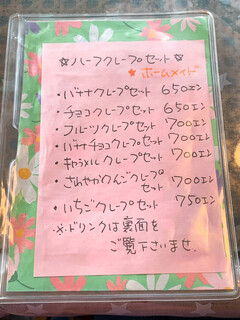 ☆ハーフクレープセット☆
★ホームメイド
・バナナクレープセット 650エン
・チョコクレープセット 650エン
・フルーツクレープセット 700エン
・バナナチョコクレープセット 700エン
・キャラメルクレープセット 700エン
・さわやかりんごクレープ
セット 700エン
・いちごクレープセット 750エン
※ドリンクは裏面を
ご覧下さいませ。